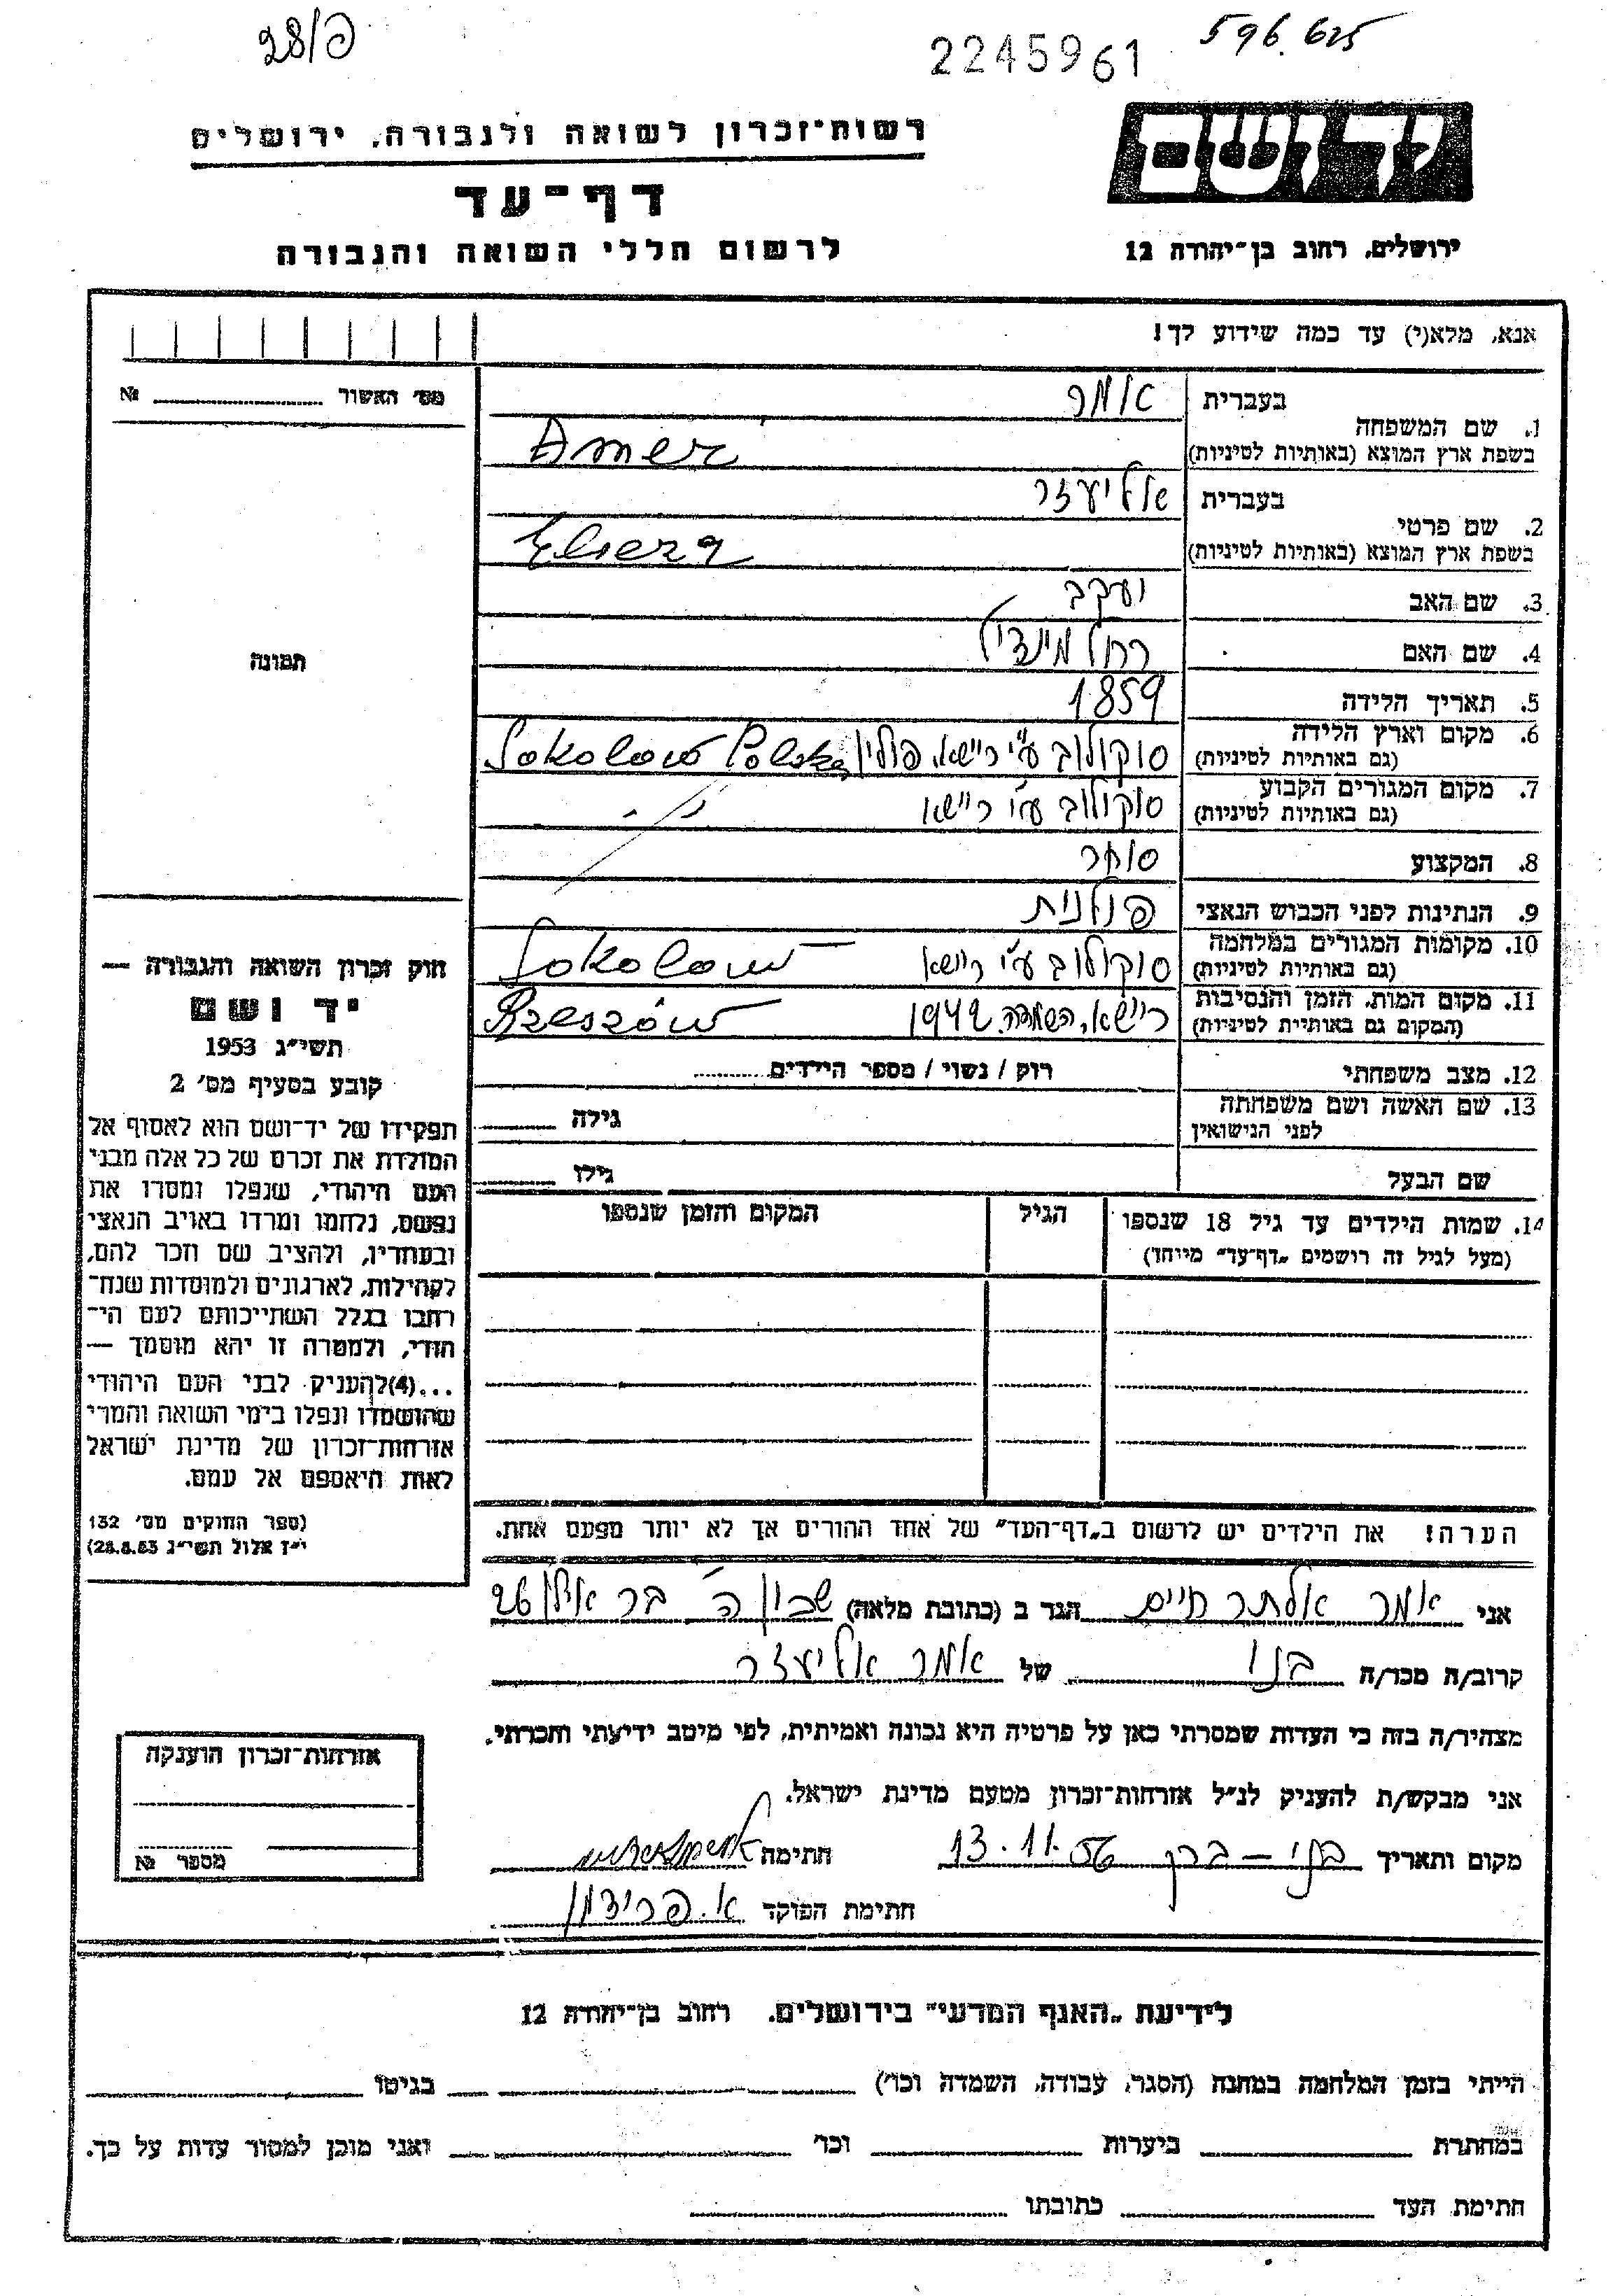 28/פ
2245961
596.625
יד ושם
ירושלים, רחוב בן־יהודה 12
רשות־זכרון לשואה ולגבורה, ירושלים
דף־עד
לרשום חללי השואה והגבורה
אנא, מלא(י) עד כמה שידוע לך!
מס' האשור № 
תמונה
1. שם המשפחה בעברית אמר
בשפת ארץ המוצא (באותיות לטיניות) Amer
2. שם פרטי בעברית אליעזר
בשפת ארץ המוצא (באותיות לטיניות)
3. שם האב יעקב
4. שם האם רחל מינדיל
5. תאריך הלידה 1859
6. מקום וארץ הלידה (גם באותיות לטיניות) סוקולוב ע"י ריישא, פולין Sokolow Polska
7. מקום המגורים הקבוע (גם באותיות לטיניות) סוקולוב ע"י ריישא
8. המקצוע סוחר
9. הנתינות לפני הכבוש הנאצי פולנית
10. מקומות המגורים במלחמה (גם באותיות לטיניות) סוקולוב ע"י ריישא Sokolow
11. מקום המות, הזמן והנסיבות (המקום גם באותיות לטיניות) ריישא, השמדה 1942 Rzeszów
12. מצב משפחתי רוק / נשוי / מספר הילדים
13. שם האשה ושם משפחתה לפני הנישואין גילה
שם הבעל גילו
14. שמות הילדים עד גיל 18 שנספו הגיל המקום והזמן שנספו
(מעל לגיל זה רושמים „דף־עד" מיוחד)
הערה! את הילדים יש לרשום ב„דף־העד" של אחד ההורים אך לא יותר מפעם אחת.
חוק זכרון השואה והגבורה —
יד ושם
תשי"ג 1953
קובע בסעיף מס' 2
תפקידו של יד־ושם הוא לאסוף אל
המולדת את זכרם של כל אלה מבני
העם היהודי, שנפלו ומסרו את
נפשם, נלחמו ומרדו באויב הנאצי
ובעוזריו, ולהציב שם וזכר להם,
לקהילות, לארגונים ולמוסדות שנח־
רבו בגלל השתייכותם לעם הי־
הודי, ולמטרה זו יהא מוסמך —
...(4)להעניק לבני העם היהודי
שהושמדו ונפלו בימי השואה והמרי
אזרחות־זכרון של מדינת ישראל
לאות היאספם אל עמם.
(ספר החוקים מס' 132
י"ז אלול תשי"ג 28.8.53)
אני אמר אלתר חיים הגר ב (כתובת מלאה) שכון ה' בר אילן 26
קרוב/ה מכר/ה בנו של אמר אליעזר
מצהיר/ה בזה כי העדות שמסרתי כאן על פרטיה היא נכונה ואמיתית, לפי מיטב ידיעתי והכרתי.
אני מבקש/ת להעניק לנ"ל אזרחות־זכרון מטעם מדינת ישראל.
מקום ותאריך בני–ברק 13.11.56 חתימה
חתימת הפוקד
אזרחות־זכרון הוענקה
מספר №
לידיעת „האגף המדעי" בירושלים. רחוב בן־יהודה 12
הייתי בזמן המלחמה במחנה (הסגר, עבודה, השמדה וכו') בגיטו
במחתרת ביערות וכו' ואני מוכן למסור עדות על כך.
חתימת העד כתובתו